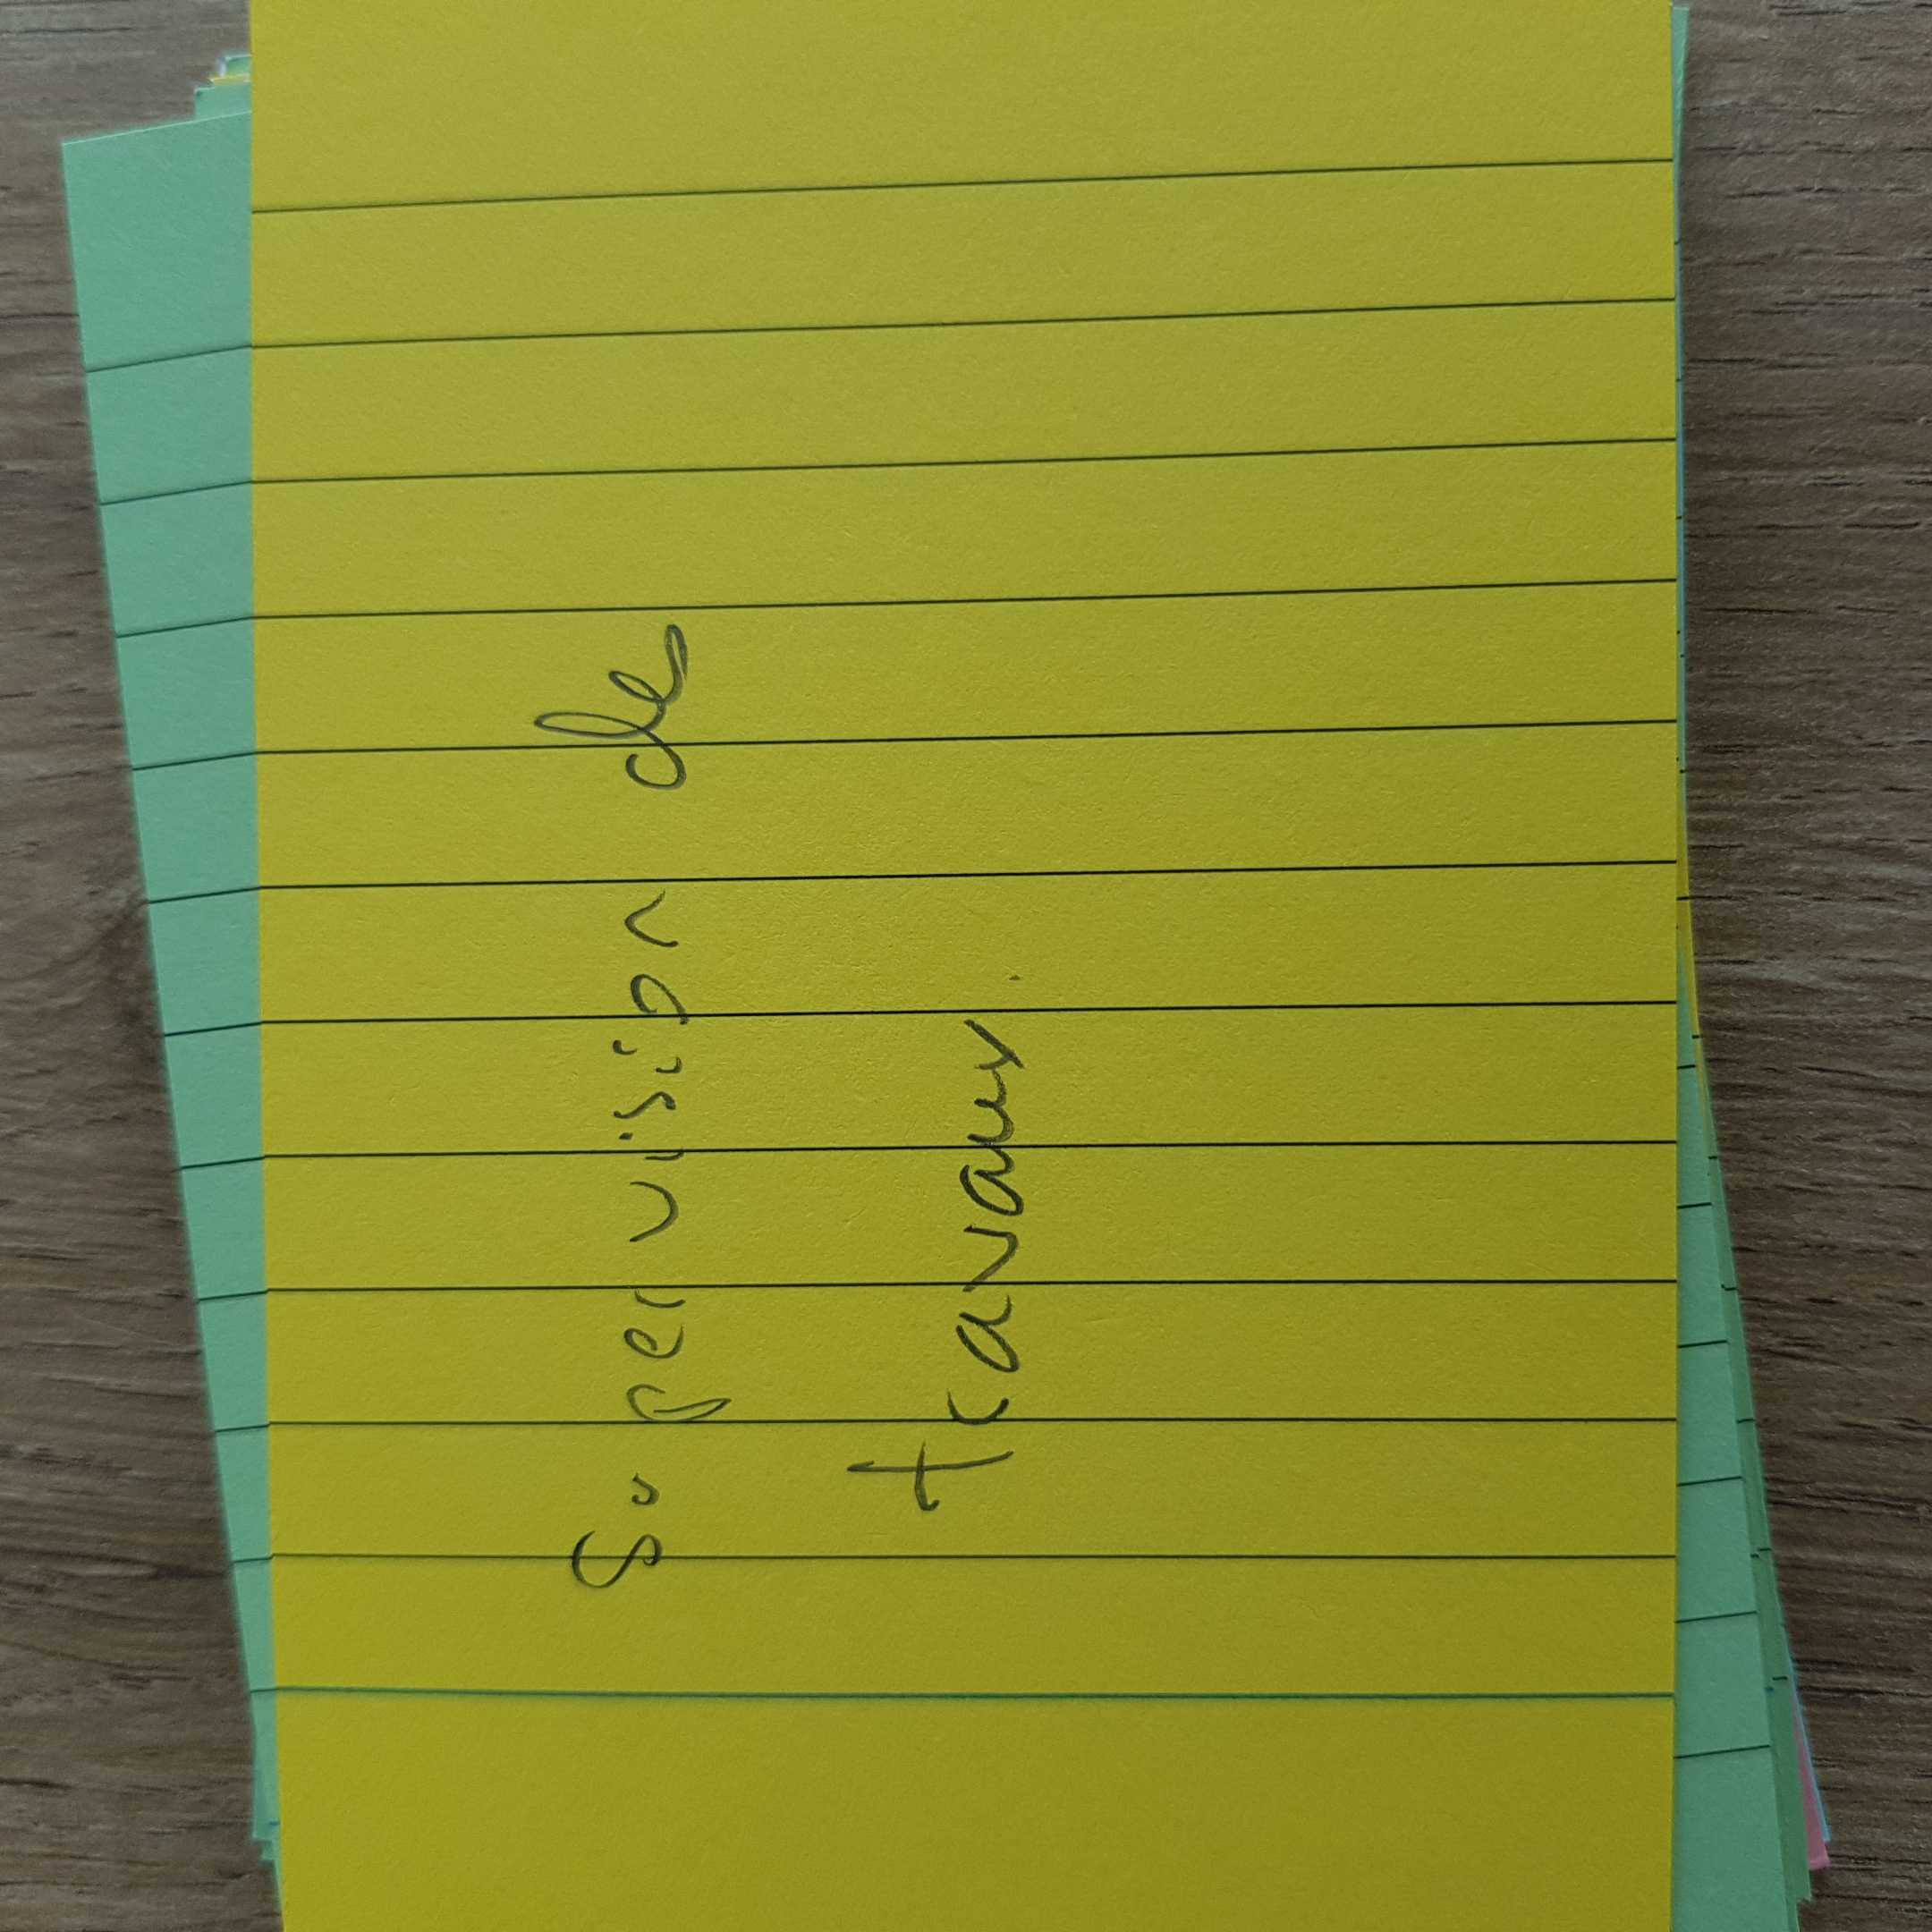 Supervision de
travaux.